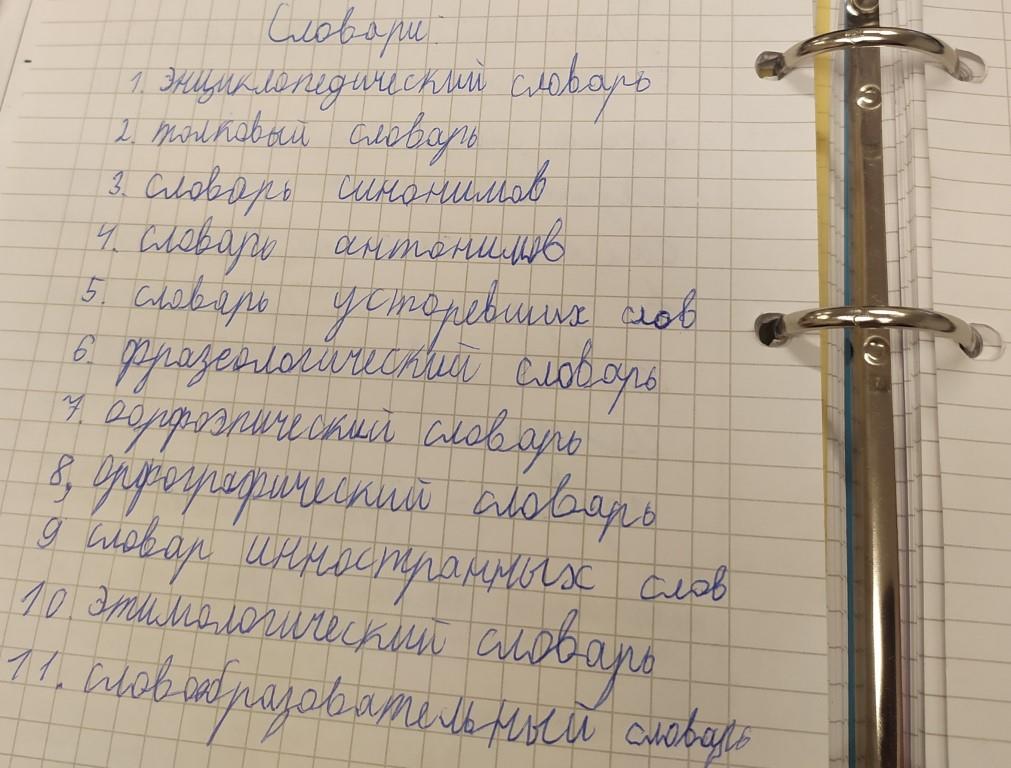 Словари.
1. энциклопедический словарь
2. толковый словарь
3. словарь синонимов
4. словарь антонимов
5. словарь устаревших слов
6. фразеологический словарь
7. аорфоэпический словарь
8, орфографический словарь
9 словар инностранных слов
10. этимологический словарь
11. словообразовательный словарь